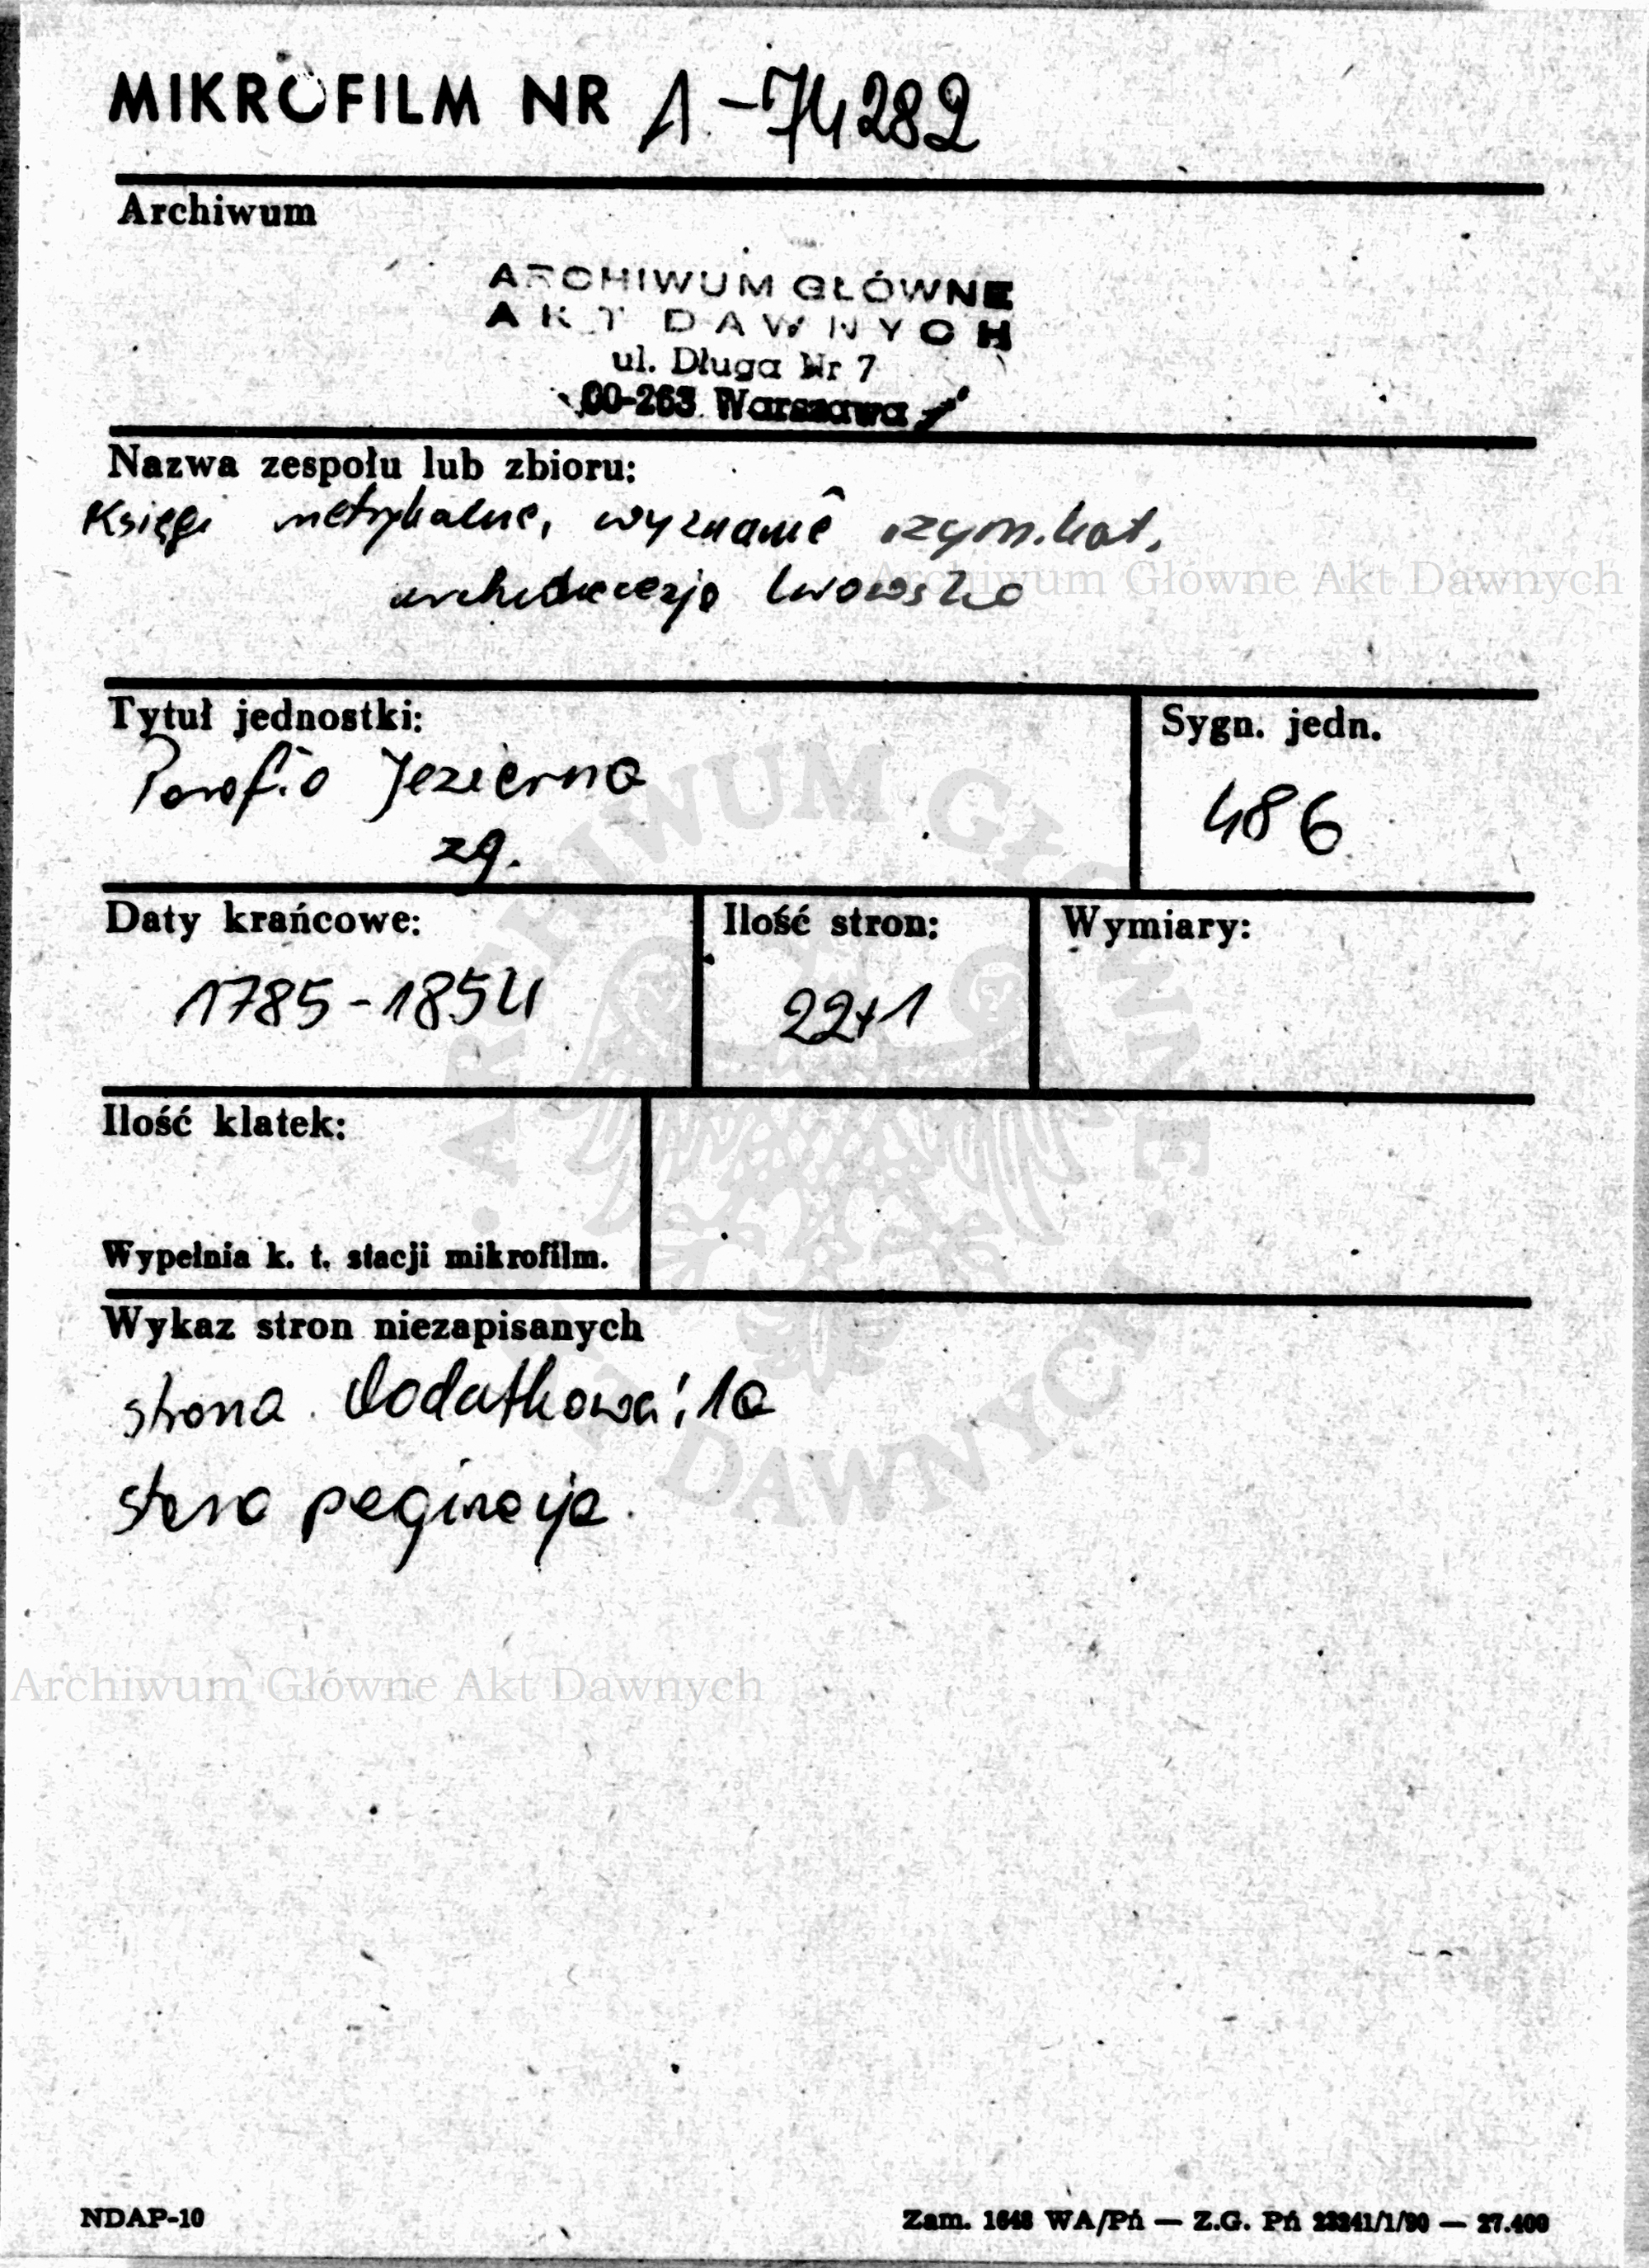 MIKROFILM NR 1-74282
Archiwum
ARCHIWUM GŁÓWNE
AKT DAWNYCH
ul. Długa Nr 7
00-263 Warszawa
Nazwa zespołu lub zbioru:
Księgi metrykalne, wyznanie rzym.kat.
archidiecezja lwowska
Archiwum Główne Akt Dawnych
Tytuł jednostki:
Parafia Jezierna
zg.
Sygn. jedn.
486
Daty krańcowe:
1785-1854
Ilość stron:
22+1
Wymiary:
Ilość klatek:
Wypełnia k. t. stacji mikrofilm.
ARCHIWUM GŁÓWNE AKT DAWNYCH
Wykaz stron niezapisanych
strona dodatkowa: 1a
stara paginacja
Archiwum Główne Akt Dawnych
NDAP-10
Zam. 1648 WA/Pń — Z.G. Pń 23241/1/90 — 27.400